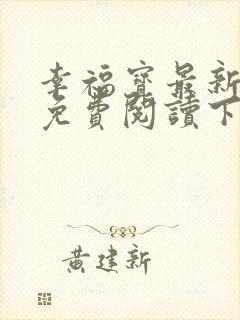 幸福寶最新
免費閱讀下
黃建新